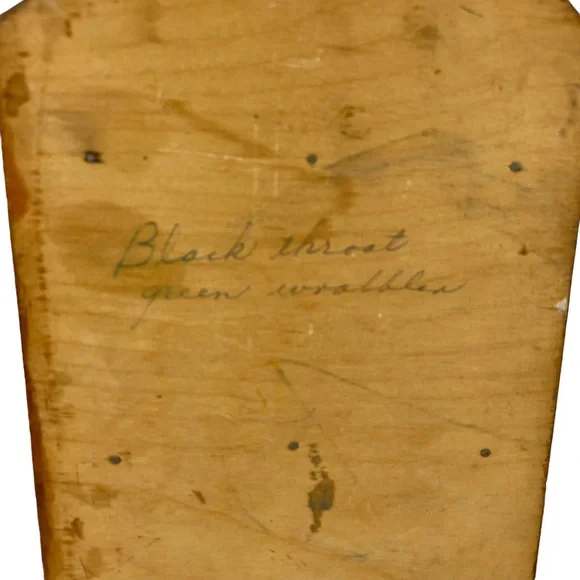 Black throat
green wrabbler